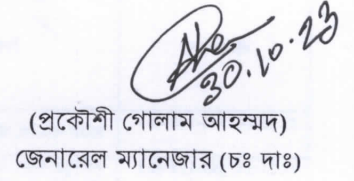 30.10.23
(প্রকৌশী গোলাম আহম্মদ)
জেনারেল ম্যানেজার (চঃ দাঃ)